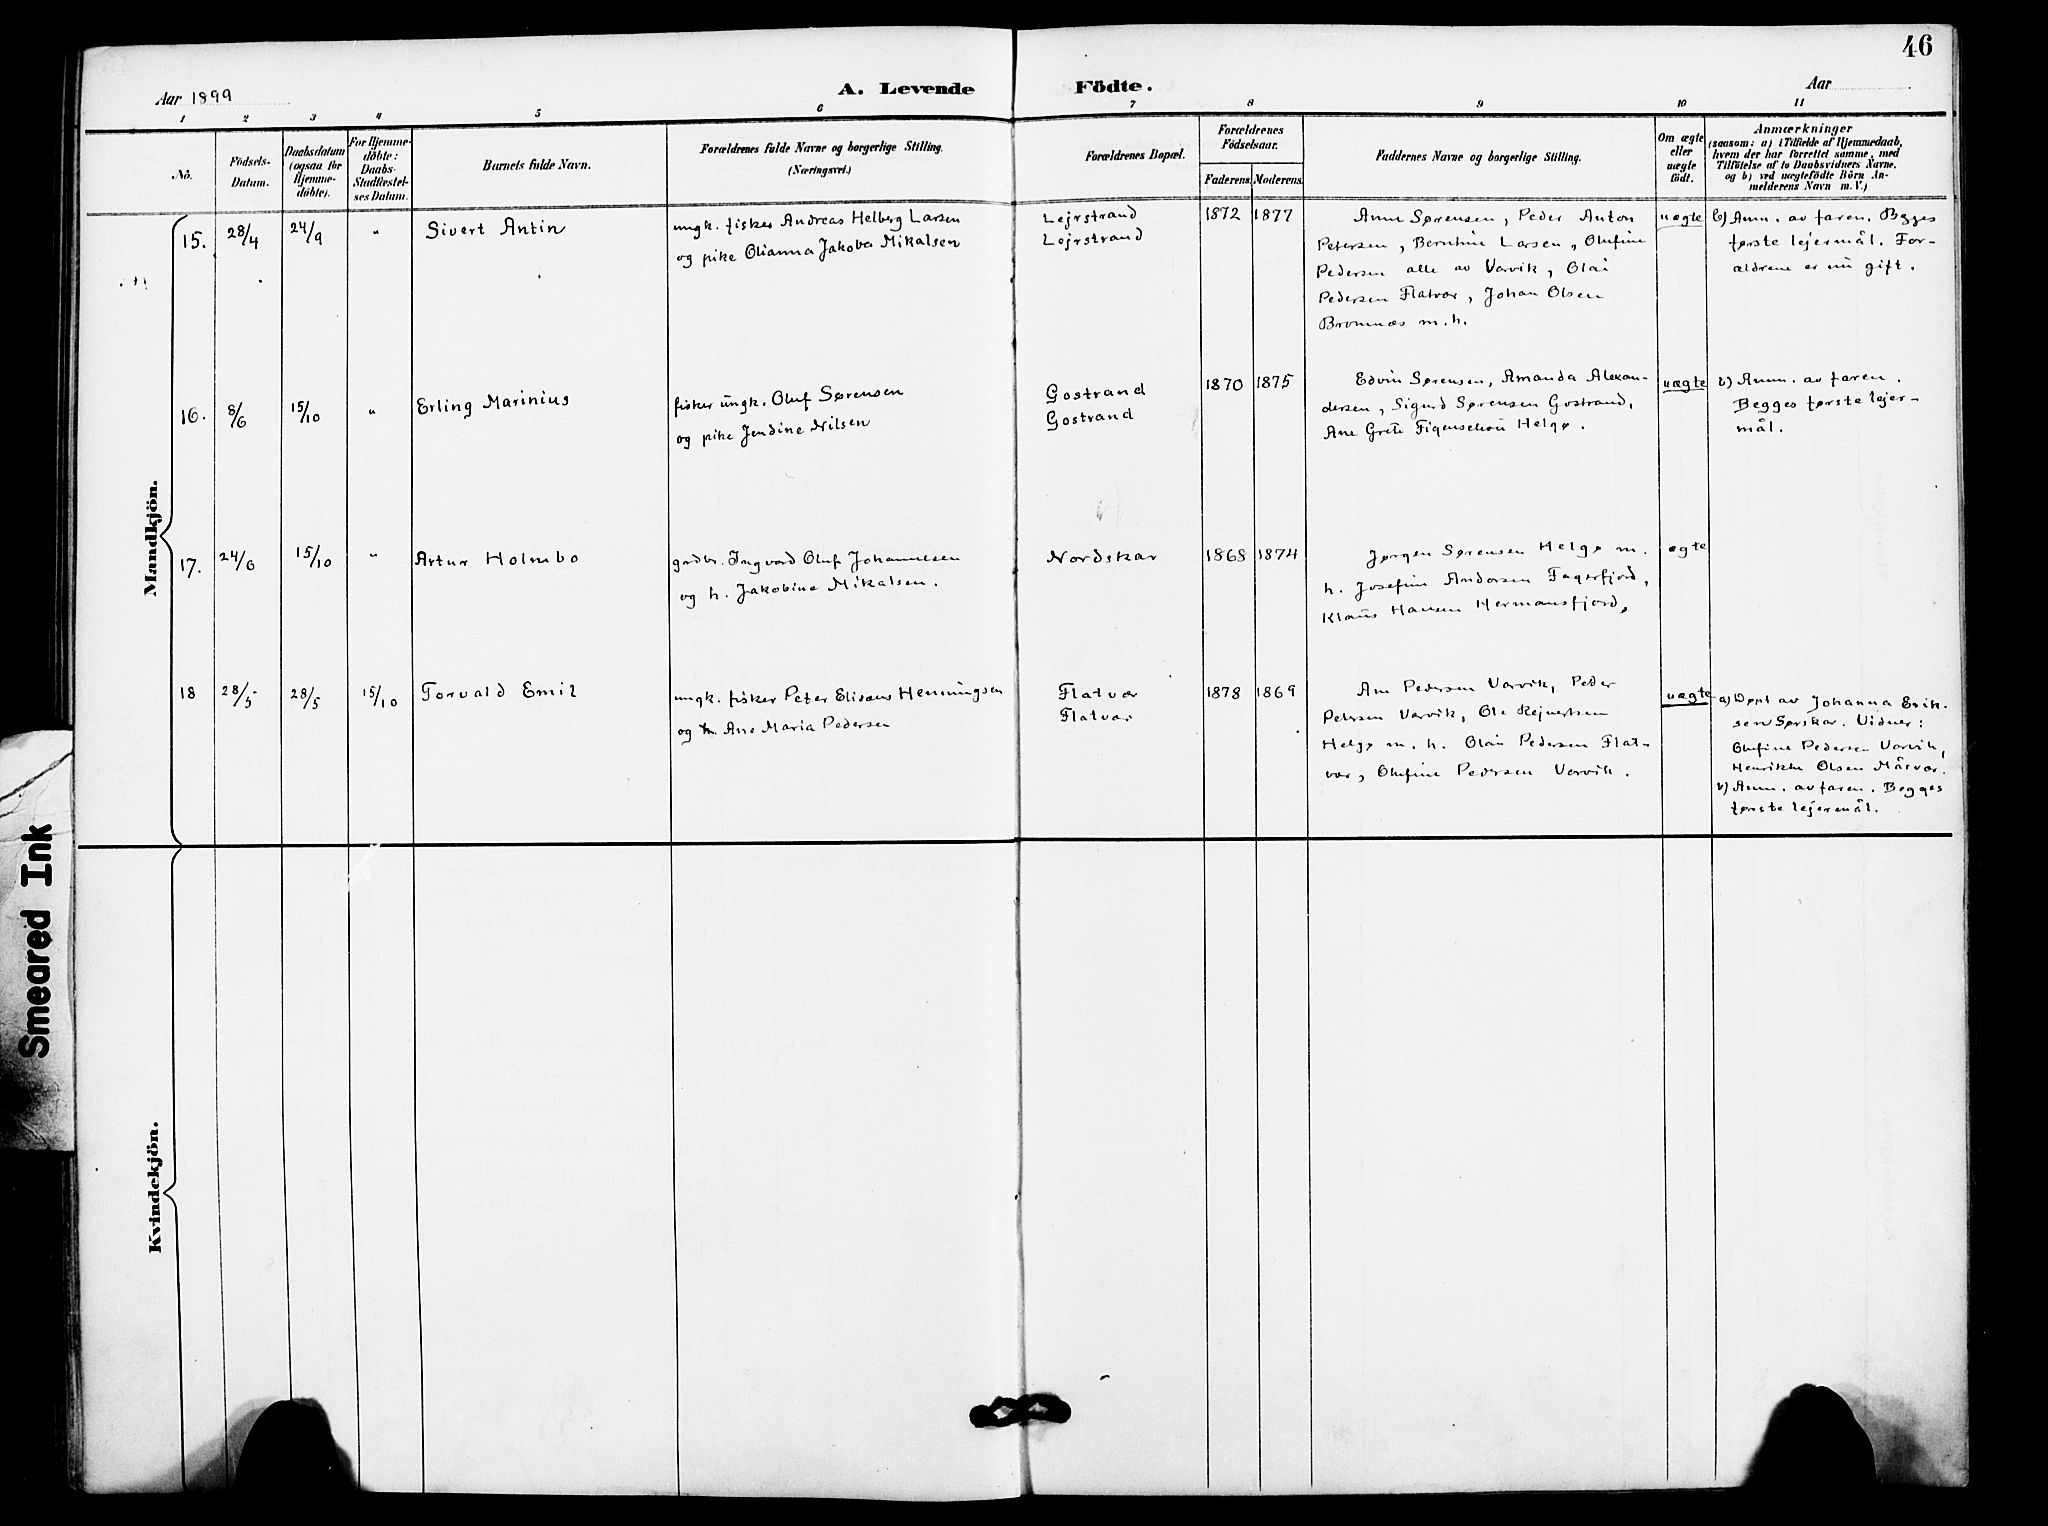 46
Aar 1899
A. Levende Födte.
Aar
1 2 3 4 5 6 7 8 9 10 11
No.
Födsels-
Datum.
Daabsdatum
(ogsaa for
Hjemme-
döbte).
For Hjemme-
döbte:
Daabs-
Stadfæstel-
ses Datum.
Barnets fulde Navn.
Forældrenes fulde Navne og borgerlige Stilling.
(Næringsvei.)
Forældrenes Bopæl.
Forældrenes
Födselsaar.
Faderens. Moderens.
Faddernes Navne og borgerlige Stilling.
Om ægte
eller
uægte
födt.
Anmærkninger
(saasom: a) i Tilfælde af Hjemmedaab,
hvem der har forrettet samme, med
Tilföielse af to Daabsvidners Navne.
og b) ved uægtefödte Börn An-
melderens Navn m. V.)
Mandkjön.
15. 28/4 24/9 " Sivert Antin
ungk. fisker Andreas Helberg Larsen
og pike Olianna Jakoba Mikalsen
Lejrstrand
Lejrstrand
1872 1877
Anne Sørensen, Peder Anton
Petersen, Bernhine Larsen, Olufine
Pedersen alle av Varvik, Olai
Pedersen Flatvær, Johan Olsen
Bromnæs m. h.
uægte
b) Anm. av faren. Begges
første lejermål. For-
ældrene er nu gift.
16. 8/6 15/10 " Erling Marinius
fisker ungk. Oluf Sørensen
og pike Jendine Nilsen
Gostrand
Gostrand
1870 1875
Edvin Sørensen, Amanda Alexan-
dersen, Sigurd Sørensen Gostrand,
Ane Grete Figenschou Helgø.
uægte
b) Anm. av faren.
Begges første lejer-
mål.
17. 24/6 15/10 " Artur Holmbo
grdbr. Ingvard Oluf Johannesen
og h. Jakobine Mikalsen.
Nordskar
1868 1874
Jørgen Sørensen Helgø m.
h. Josefine Andersen Fagerfjord,
Klaus Hansen Hermansfjord,
ægte
18 28/5 28/5 15/10 Torvald Emil
ungk. fisker Peter Elisæus Henningsen
og h. Ane Maria Pedersen
Flatvær
Flatvær
1878 1869
Ane Pedersen Varvik, Peder
Petersen Varvik, Ole Rejnertsen
Helgø m. h. Olai Pedersen Flat-
vær, Olufine Pedersen Varvik.
uægte
a) Døpt av Johanna Erik-
sen Sørskar. Vidner:
Olufine Pedersen Varvik,
Henrikke Olsen Måsvær.
b) Anm. av faren. Begges
første lejermål.
Kvindekjön.
Smeared Ink